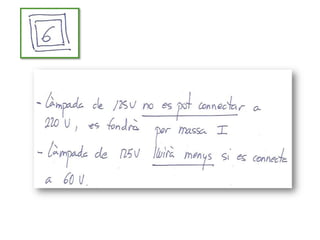 6
- Làmpada de 125V no es pot connectar a
220 V, es fondrà per massa I
- Làmpada de 125V lluirà menys si es connecta
a 60 V.